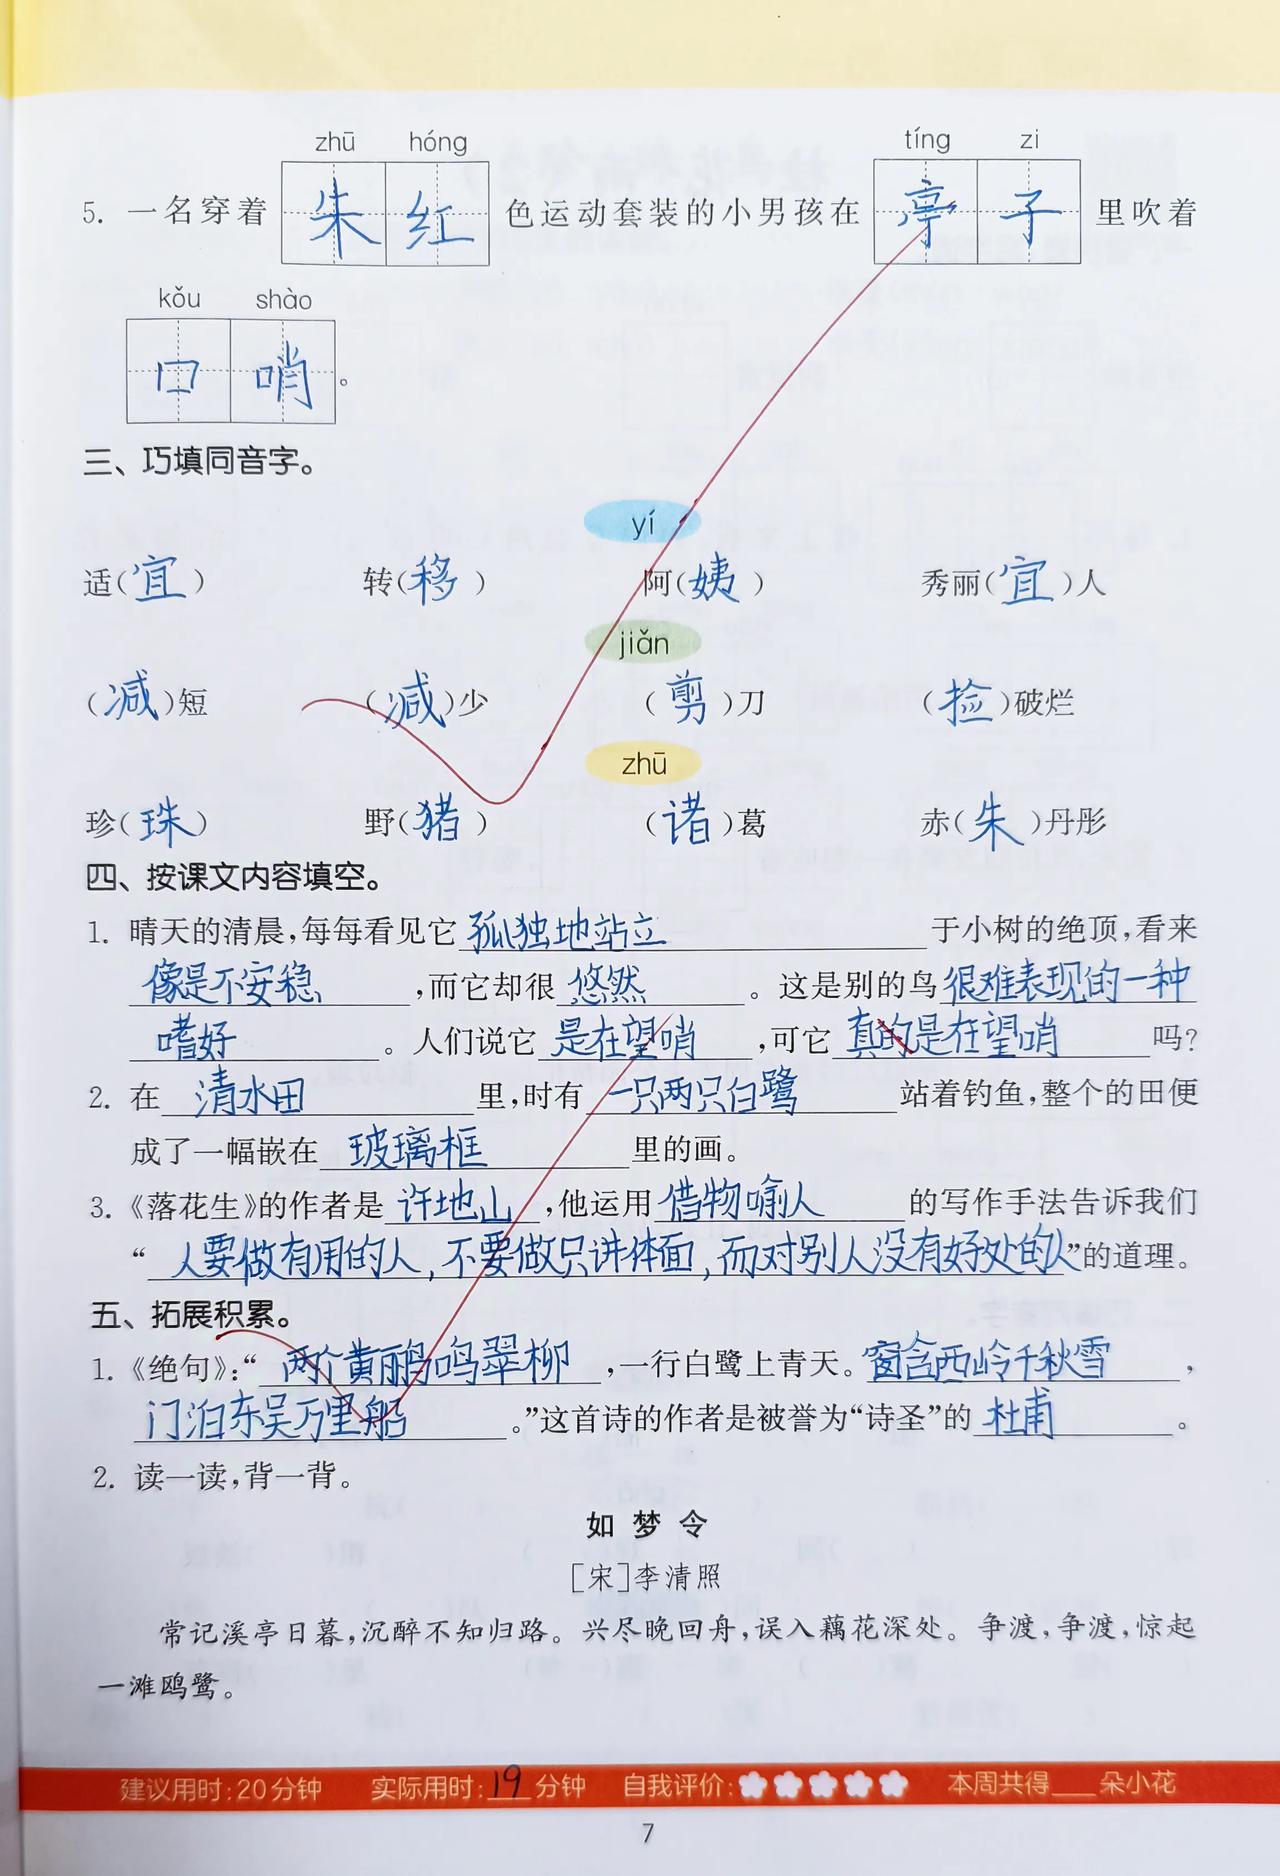 zhū hóng tíng zi
5. 一名穿着 朱红 色运动套装的小男孩在 亭子 里吹着
kǒu shào
口哨。
三、巧填同音字。
yí
适(宜) 转(移) 阿(姨) 秀丽(宜)人
jiǎn
(减)短 (减)少 (剪)刀 (捡)破烂
zhū
珍(珠) 野(猪) (诸)葛 赤(朱)丹彤
四、按课文内容填空。
1. 晴天的清晨,每每看见它 孤独地站立 于小树的绝顶,看来
像是不安稳,而它却很 悠然。这是别的鸟 很难表现的一种
嗜好。人们说它 是在望哨,可它 真的是在望哨 吗?
2. 在 清水田 里,时有 一只两只白鹭 站着钓鱼,整个的田便
成了一幅嵌在 玻璃框 里的画。
3.《落花生》的作者是 许地山,他运用 借物喻人 的写作手法告诉我们
“人要做有用的人,不要做只讲体面,而对别人没有好处的人”的道理。
五、拓展积累。
1.《绝句》:“两个黄鹂鸣翠柳,一行白鹭上青天。窗含西岭千秋雪,
门泊东吴万里船。”这首诗的作者是被誉为“诗圣”的 杜甫。
2. 读一读,背一背。
如梦令
[宋]李清照
常记溪亭日暮,沉醉不知归路。兴尽晚回舟,误入藕花深处。争渡,争渡,惊起
一滩鸥鹭。
建议用时:20分钟 实际用时:19分钟 自我评价: 本周共得___朵小花
7